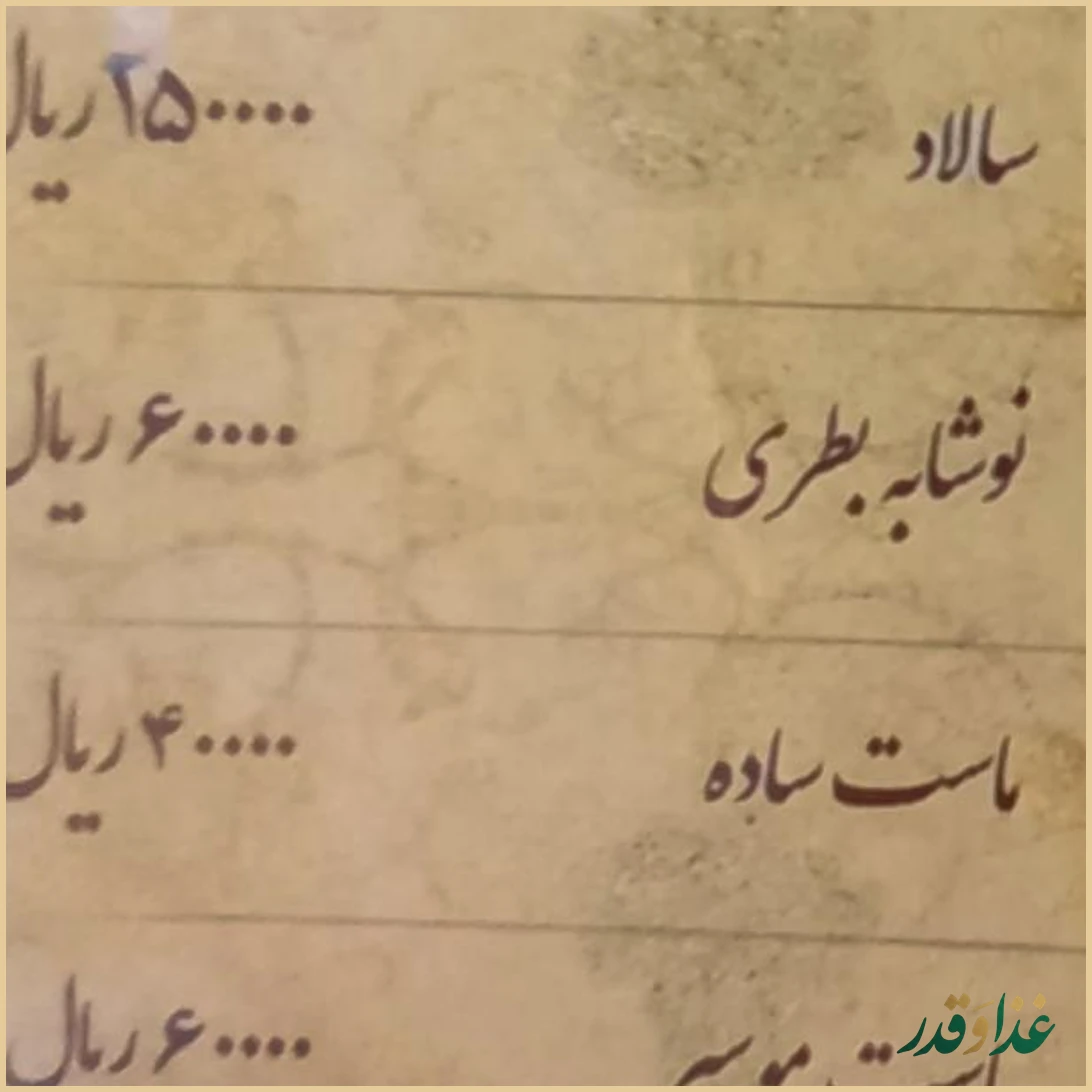 سالاد ۲۵۰۰۰۰ ریال
نوشابه بطری ۶۰۰۰۰ ریال
ماست ساده ۴۰۰۰۰ ریال
ماست موسیر ۶۰۰۰۰ ریال
غذا و قدر